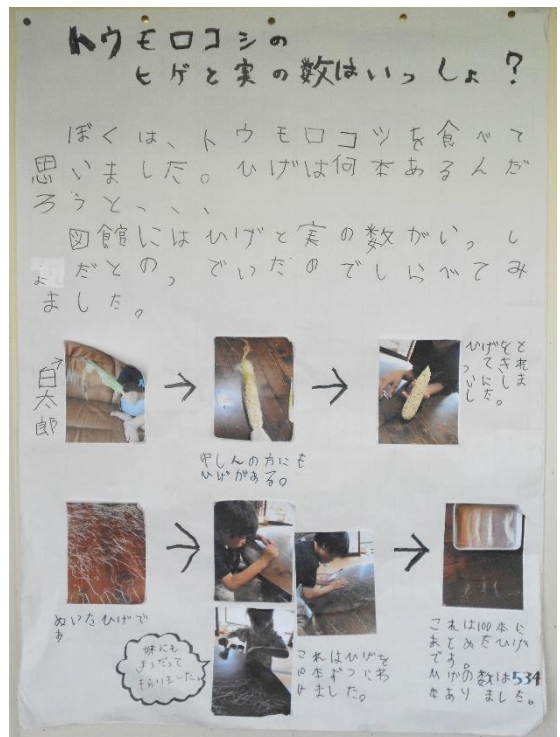 トウモロコシの
ヒゲと実の数はいっしょ?
ぼくは、トウモロコツを食べて
思いました。ひげは何本あるんだ
ろうと、、、
図館にはひげと実の数がいっし
ょだとのっでいたのでしらべてみ
ました。
白太郎
中しんの方にも
ひげがある。
とれま
をきし
ぬいたひげで
す
妹にも
てつだって
もらいました。
これはひげを
10本ずつにわ
けました。
これは100本に
まとめたひげ
です。
ひげの数は534
本ありました。